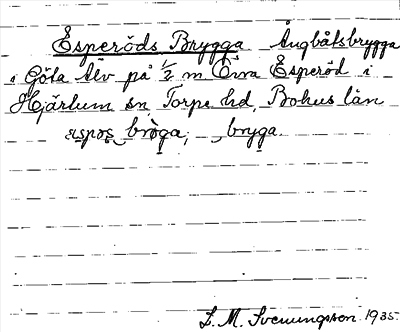 Esperöds Brygga Ångbåtsbrygga
i Göta Älv på ½ m Öma Esperöd i
Hjärtum sn, Torpe hd, Bohus län
bròga, , bryga.
L. M. Svenungsson 1935.